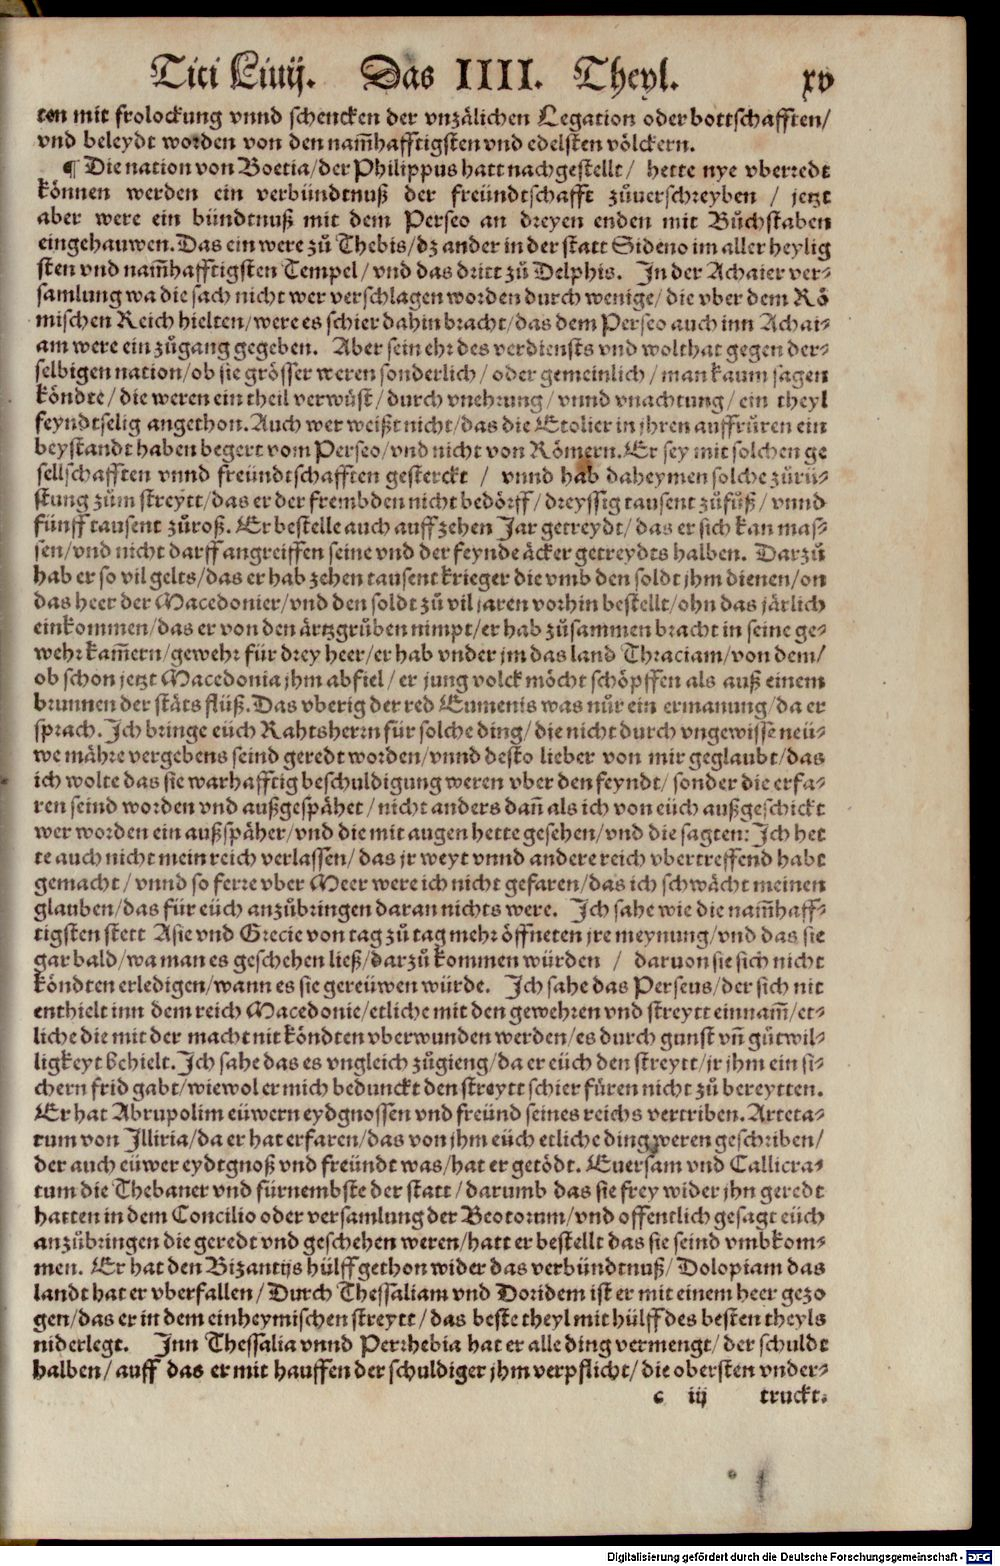 Titi Liuij. Das IIII. Theyl. xv
ten mit frolockung vnnd schencken der vnzälichen Legation oder bottschafften/
vnd beleydt worden von den nam̃hafftigsten vnd edelsten völckern.
¶ Die nation von Boetia/der Philippus hatt nachgestellt/ hette nye vberredt
können werden ein verbündtnuß der freündtschafft zůuerschreyben / jetzt
aber were ein bündtnuß mit dem Perseo an dreyen enden mit Bůchstaben
eingehauwen. Das ein were zů Thebis/dz ander in der statt Sideno im aller heylig
sten vnd nam̃hafftigsten Tempel/vnd das dritt zů Delphis. In der Achaier ver-
samlung wa die sach nicht wer verschlagen worden durch wenige/die vber dem Rö
mischen Reich hielten/were es schier dahin bracht/das dem Perseo auch inn Achai-
am were ein zůgang gegeben. Aber sein ehr des verdiensts vnd wolthat gegen der-
selbigen nation/ob sie grösser weren sonderlich/oder gemeinlich/man kaum sagen
köndte/die weren ein theil verwüst/durch vnehrung/vnnd vnachtung/ein theyl
feyndtselig angethon. Auch wer weißt nicht/das die Etolier in jhren auffrůren ein
beystandt haben begert vom Perseo/vnd nicht von Römern. Er sey mit solchen ge
sellschafften vnnd freündtschafften gesterckt / vnnd hab daheymen solche zůrü-
stung zům streytt/das er der frembden nicht bedörff/dreyssig tausent zůfůß/vnnd
fünff tausent zůroß. Er bestelle auch auff zehen Jar getreydt/das er sich kan mas-
sen/vnd nicht darff angreiffen seine vnd der feynde äcker getreydts halben. Darzů
hab er so vil gelts/das er hab zehen tausent krieger die vmb den soldt jhm dienen/on
das heer der Macedonier/vnd den soldt zů vil jaren vorhin bestellt/ohn das järlich
einkommen/das er von den ärtzgrůben nimpt/er hab zůsammen bracht in seine ge-
wehrkam̃ern/gewehr für drey heer/er hab vnder jm das land Thraciam/von dem/
ob schon jetzt Macedonia jhm abfiel/er jung volck möcht schöpffen als auß einem
brunnen der stäts flüß. Das vberig der red Eumenis was nůr ein ermanung/da er
sprach. Ich bringe eüch Rahtsherrn für solche ding/die nicht durch vngewisse neü-
we mähre vergebens seind geredt worden/vnnd desto lieber von mir geglaubt/das
ich wolte das sie warhafftig beschuldigung weren vber den feyndt/sonder die erfa-
ren seind worden vnd außgespähet/nicht anders dañ als ich von eüch außgeschickt
wer worden ein außspäher/vnd die mit augen hette gesehen/vnd die sagten: Ich het
te auch nicht mein reich verlassen/das jr weyt vnnd andere reich vbertreffend habt
gemacht/vnnd so ferre vber Meer were ich nicht gefaren/das ich schwächt meinen
glauben/das für eüch anzůbringen daran nichts were. Ich sahe wie die nam̃haff-
tigsten stett Asie vnd Grecie von tag zů tag mehr öffneten jre meynung/vnd das sie
gar bald/wa man es geschehen ließ/darzů kommen würden / daruon sie sich nicht
köndten erledigen/wann es sie gereüwen würde. Ich sahe das Perseus/der sich nit
enthielt inn dem reich Macedonie/etliche mit den gewehren vnd streytt einnam̃/et-
liche die mit der macht nit köndten vberwunden werden/es durch gunst vñ gůtwil-
ligkeyt behielt. Ich sahe das es vngleich zůgieng/da er eüch den streytt/jr jhm ein si-
chern frid gabt/wiewol er mich bedunckt den streytt schier fůren nicht zů bereytten.
Er hat Abrupolim eüwern eydgnossen vnd freünd seines reichs vertriben. Arteta-
rum von Illiria/da er hat erfaren/das von jhm eüch etliche ding weren geschriben/
der auch eüwer eydtgnoß vnd freündt was/hat er getödt. Euersam vnd Callicra-
tum die Thebaner vnd fürnembste der statt/darumb das sie frey wider jhn geredt
hatten in dem Concilio oder versamlung der Beotorum/vnd offentlich gesagt eüch
anzůbringen die geredt vnd geschehen weren/hatt er bestellt das sie seind vmbkom-
men. Er hat den Bizantijs hülff gethon wider das verbündtnuß/Dolopiam das
landt hat er vberfallen/Durch Thessaliam vnd Doridem ist er mit einem heer gezo
gen/das er in dem einheymischen streytt/das beste theyl mit hülff des besten theyls
niderlegt. Inn Thessalia vnnd Perrhebia hat er alle ding vermengt/der schuldt
halben/auff das er mit hauffen der schuldiger jhm verpflicht/die obersten vnder-
c iij truckt.
Digitalisierung gefördert durch die Deutsche Forschungsgemeinschaft - DFG